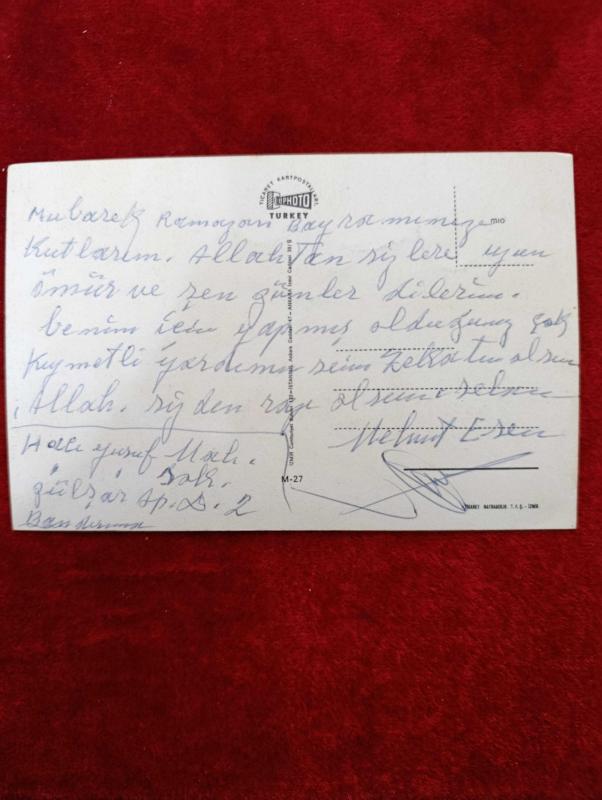 TİCARET KARTPOSTALLARI
PHOTO
TURKEY
MIO
Mubarek Ramazan Bayramınızı
Kutlarım. Allahtan sizlere uzun
ömür ve şen günler dilerim.
benim için yapmış olduğunuz çok
kıymetli yardımın Zekatın olsun
Allah. sizden razı olsun selam
Hacı Yusuf Mah.
Sok.
gülşar Ap. D. 2
Bandırma
M-27
TİCARET MATBAACILIK T.A.Ş. - İZMİR